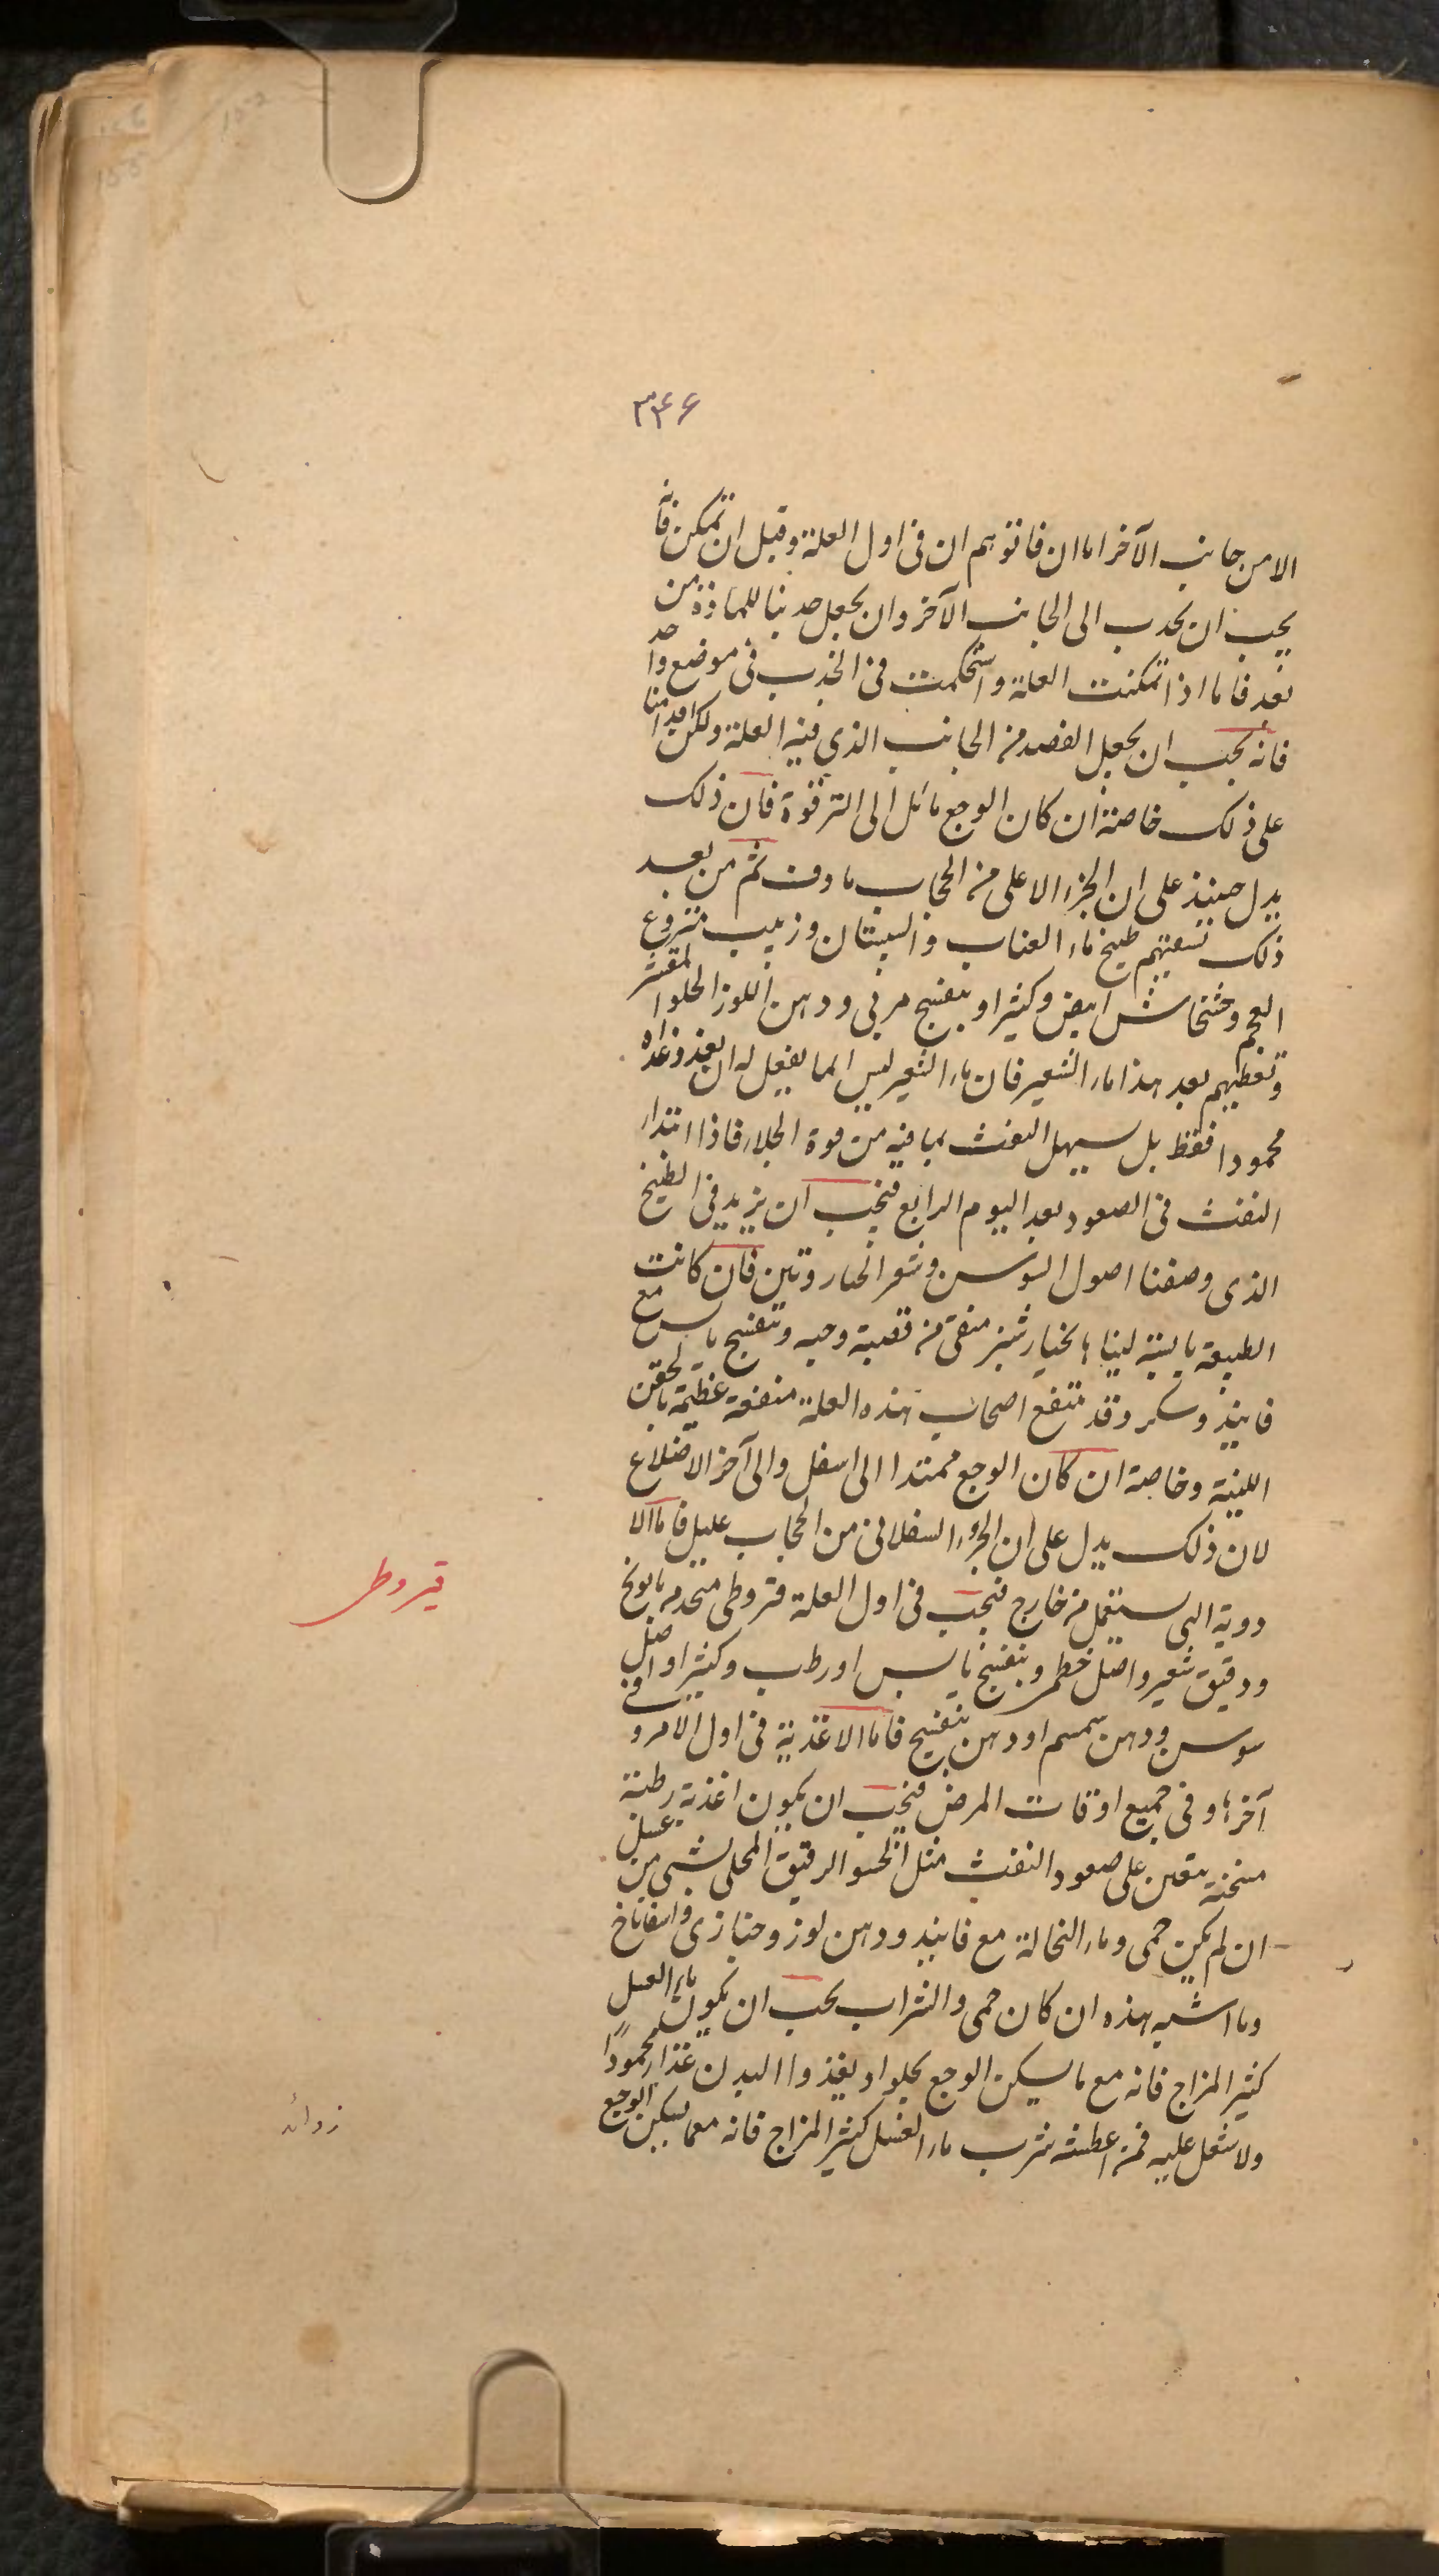 ۳۴۶
الا من جانب الآخر اما ان فانتوهم ان فى اول العلة وقبل ان تمكن فانه
يجب ان يجذب الى الجانب الآخر وان يجعل جذبنا للمادة من
بعد فاما اذا تمكنت العلة واستحكمت فى الجذب فى موضع واحد
فانه يجب ان يجعل الفصد من الجانب الذى فيه العلة ولكن اقدامنا
على ذلك خاصة ان كان الوجع مائل الى الترقوة فان ذلك
يدل حينئذ على ان الجزء الاعلى من الحجاب مادفت ثم من بعد
ذلك تسقيهم طبيخ ماء العناب والسبستان وزبيب منزوع
العجم وخشخاش ابيض وكثيرا وبنفسج مربى ودهن اللوز الحلو المقشر
وتعطيهم بعد هذا ماء الشعير فان ماء الشعير ليس انما يفعل له ان يغذو غذاه
محمودا فقط بل يسهل النفث بما فيه من قوة الجلاء فاذا ابتداء
النفث فى الصعود بعد اليوم الرابع فيجب ان يزيد فى الطبيخ
الذى وصفنا اصول السوسن وشعر الخيار وتين فان كانت
الطبيعة يابسة لينها بخيارشنبر منقى من قصبه وحبه وبنفسج يابس مع
فانيذ وسكر وقد ينتفع اصحاب هذه العلة منفعة عظيمة بالحقن
اللينة وخاصة ان كان الوجع ممتدا الى اسفل والى آخر الاضلاع
لان ذلك يدل على ان الجزء السفلانى من الحجاب عليل فاما الا
دوية التى يستعمل من خارج فيجب فى اول العلة قيروطى متخذ من بابونج
ودقيق شعير واصل خطمى وبنفسج يابس او رطب وكثيرا واصل
سوسن ودهن سمسم او دهن بنفسج فاما الاغذية فى اول الامر وفى
آخرها وفى جميع اوقات المرض فيجب ان يكون اغذية رطبة
مسخنة تعين على صعود النفث مثل الحسو الرقيق المحلى بشى من عسل
ان لم يكن حمى وماء النخالة مع فانيذ ودهن لوز وخبازى واسفاناخ
وما اشبه هذه ان كان حمى والشراب يجب ان يكون ماء العسل
كثير المزاج فانه مع ما يسكن الوجع يجلو او يغذوا البدن غذاء محمودًا
ولا يثقل عليه فمن اعطشه شرب ماء العسل كثير المزاج فانه معما يسكن الوجع
قيروطى
زوائد